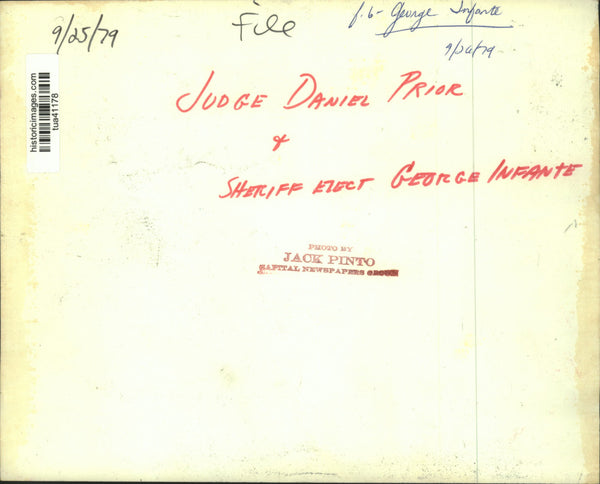 9/25/79
File
f.6- George Infante
9/26/79
historicimages.com
tua41178
JUDGE DANIEL PRIOR
&
SHERIFF ELECT GEORGE INFANTE
PHOTO BY
JACK PINTO
CAPITAL NEWSPAPERS GROUP